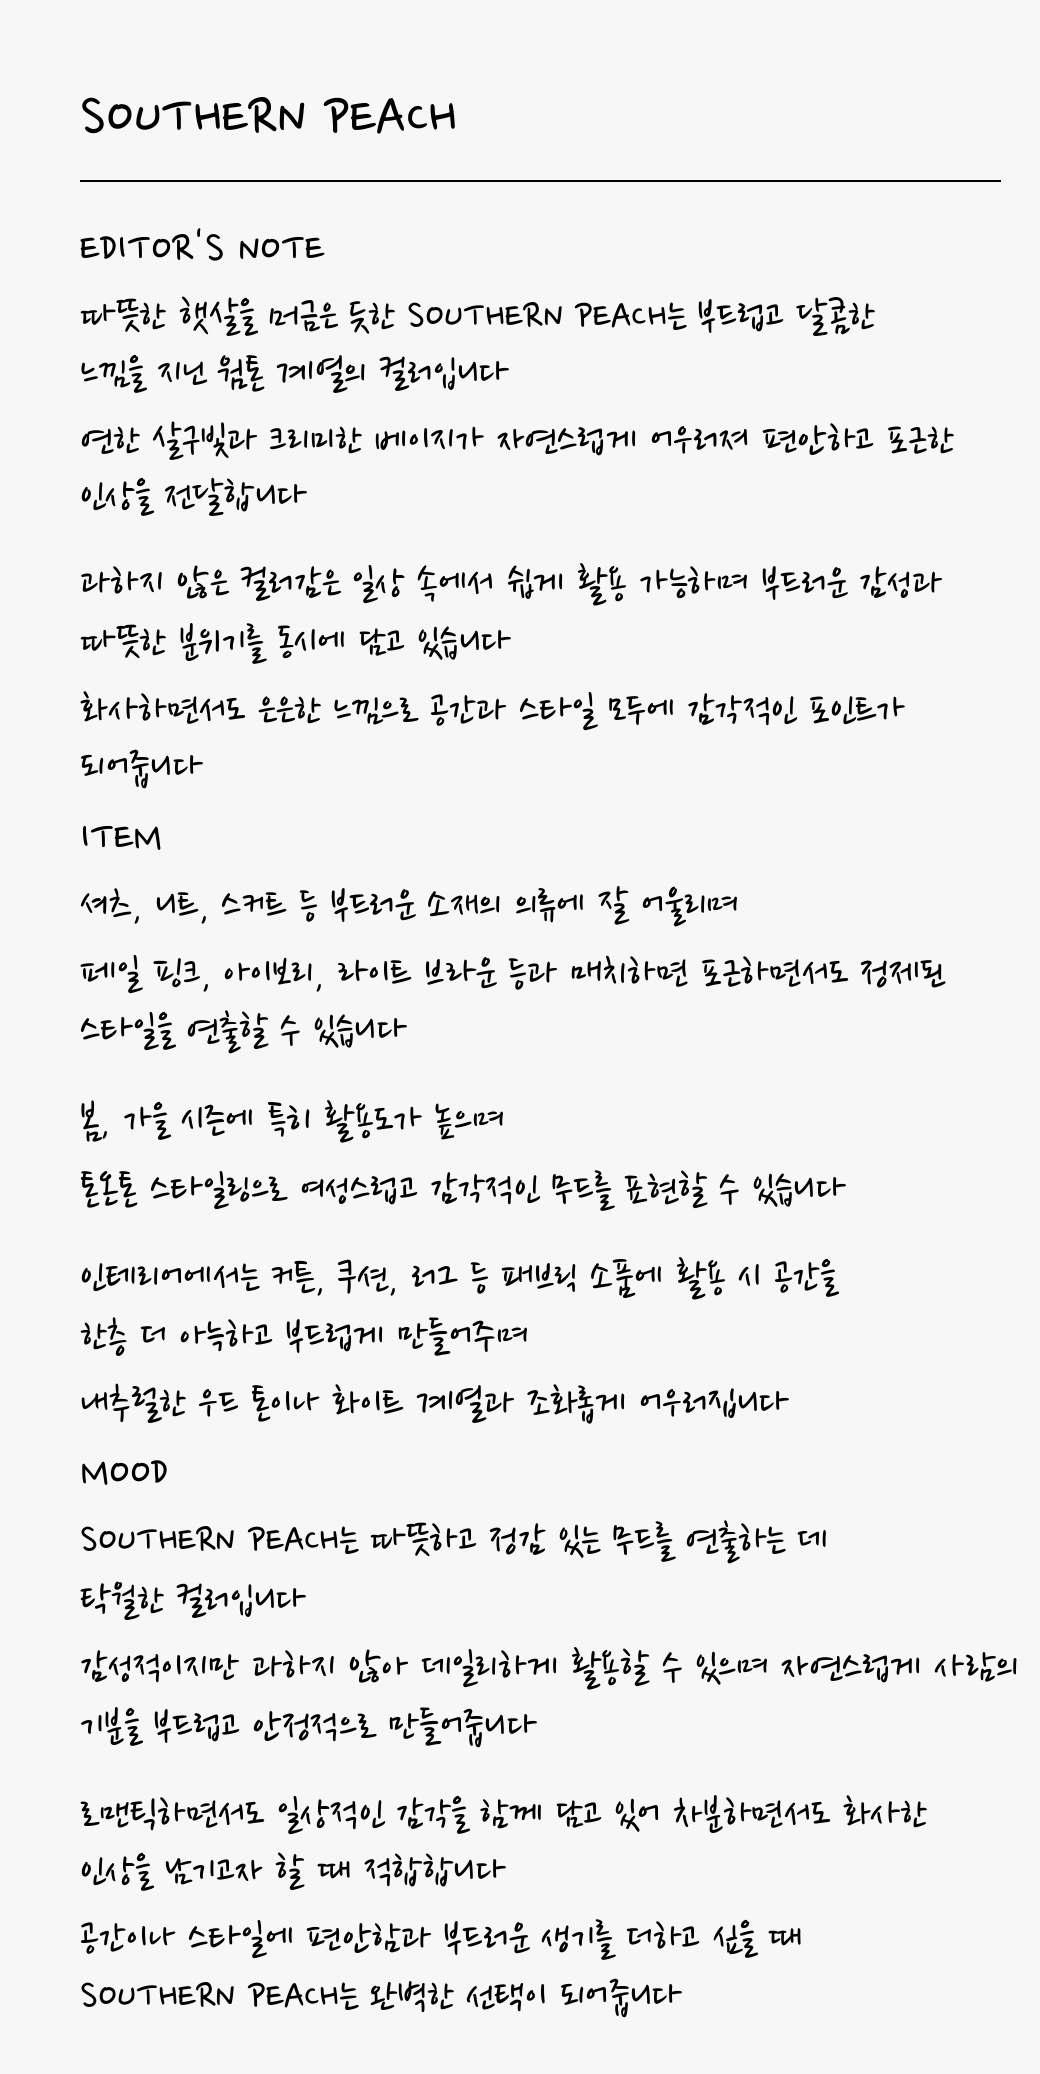 SOUTHERN PEACH
EDITOR'S NOTE
따뜻한 햇살을 머금은 듯한 SOUTHERN PEACH는 부드럽고 달콤한
느낌을 지닌 웜톤 계열의 컬러입니다
연한 살구빛과 크리미한 베이지가 자연스럽게 어우러져 편안하고 포근한
인상을 전달합니다
과하지 않은 컬러감은 일상 속에서 쉽게 활용 가능하며 부드러운 감성과
따뜻한 분위기를 동시에 담고 있습니다
화사하면서도 은은한 느낌으로 공간과 스타일 모두에 감각적인 포인트가
되어줍니다
ITEM
셔츠, 니트, 스커트 등 부드러운 소재의 의류에 잘 어울리며
페일 핑크, 아이보리, 라이트 브라운 등과 매치하면 포근하면서도 정제된
스타일을 연출할 수 있습니다
봄, 가을 시즌에 특히 활용도가 높으며
톤온톤 스타일링으로 여성스럽고 감각적인 무드를 표현할 수 있습니다
인테리어에서는 커튼, 쿠션, 러그 등 패브릭 소품에 활용 시 공간을
한층 더 아늑하고 부드럽게 만들어주며
내추럴한 우드 톤이나 화이트 계열과 조화롭게 어우러집니다
MOOD
SOUTHERN PEACH는 따뜻하고 정감 있는 무드를 연출하는 데
탁월한 컬러입니다
감성적이지만 과하지 않아 데일리하게 활용할 수 있으며 자연스럽게 사람의
기분을 부드럽고 안정적으로 만들어줍니다
로맨틱하면서도 일상적인 감각을 함께 담고 있어 차분하면서도 화사한
인상을 남기고자 할 때 적합합니다
공간이나 스타일에 편안함과 부드러운 생기를 더하고 싶을 때
SOUTHERN PEACH는 완벽한 선택이 되어줍니다